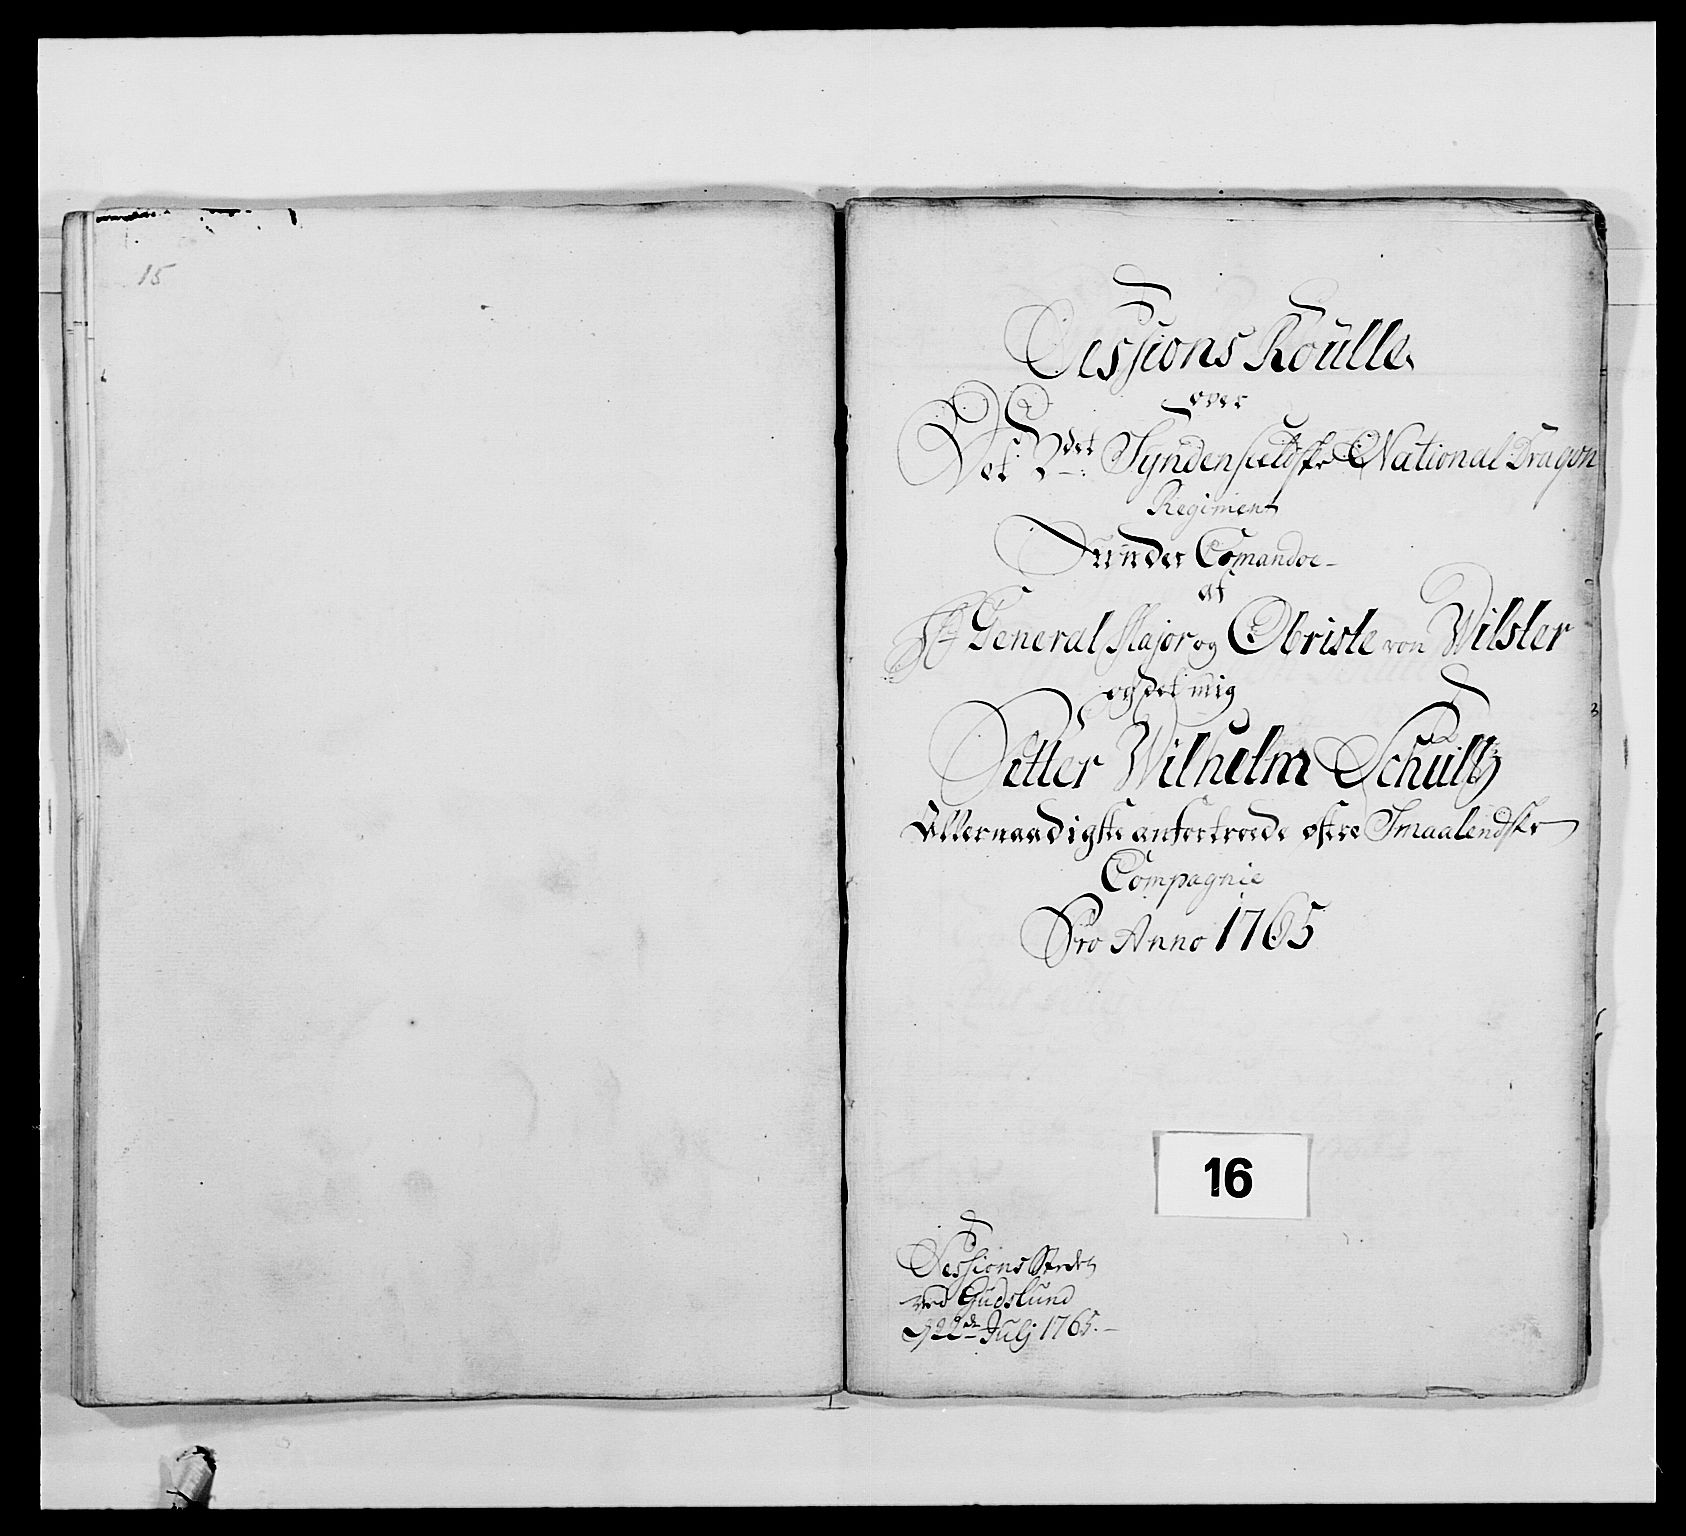 15
Sessions Roulle
over
Det 2det Syndenfieldske National Dragon
Regiment
under Comandoe
af
Hr General Major og Obriste von Wilster
og det mig
Petter Wilhelm Schultz
Allernaadigste anfortroede østre Smaalendske
Compagnie
Pro Anno 1765
16
Sessions Stedet
ved Gudslund
d 22de Julj 1765.